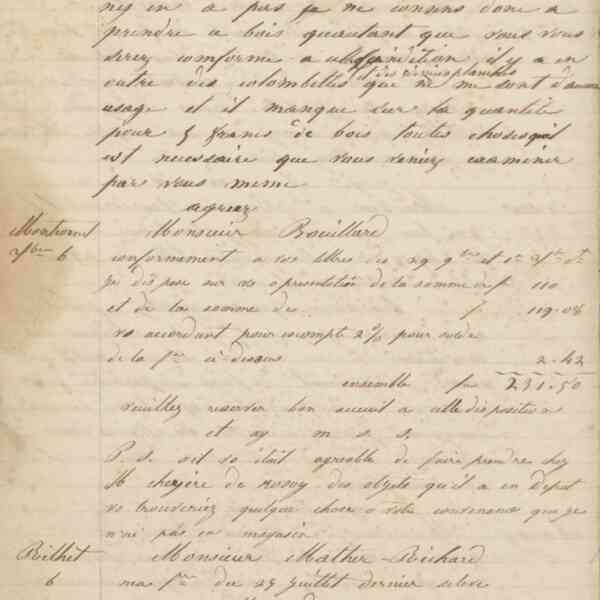 prendre ce bois quautant que vous vous
serez conforme a il y a en
et des
outre des colombelles que ne me sont d'aucun
usage et il manque sur la quantité
pour 5 francs de bois toutes choses qu'il
est necessaire que vous veniez examiner
par vous meme
agreez
Monsieur Bouillard
6
conformement a vos lettres des 29 et 1er
je dispose sur vo a presentation de la somme de f 110
et de la somme de f 119.08
vo accordant pour escompte 2 % pour solde
de la fre ci dessus 2.42
ensemble f 231.50
veuillez reserver bon accueil a cette disposition
et ag m s s.
P. S. s'il vo etait agreable de faire prendre chez
de des objets qu'il a en depot
vo trouveriez quelque chose a votre convenance que je
n'ai pas en magasin
Rilhet Monsieur Mather Richard
6 ma fre du 25 juillet dernier